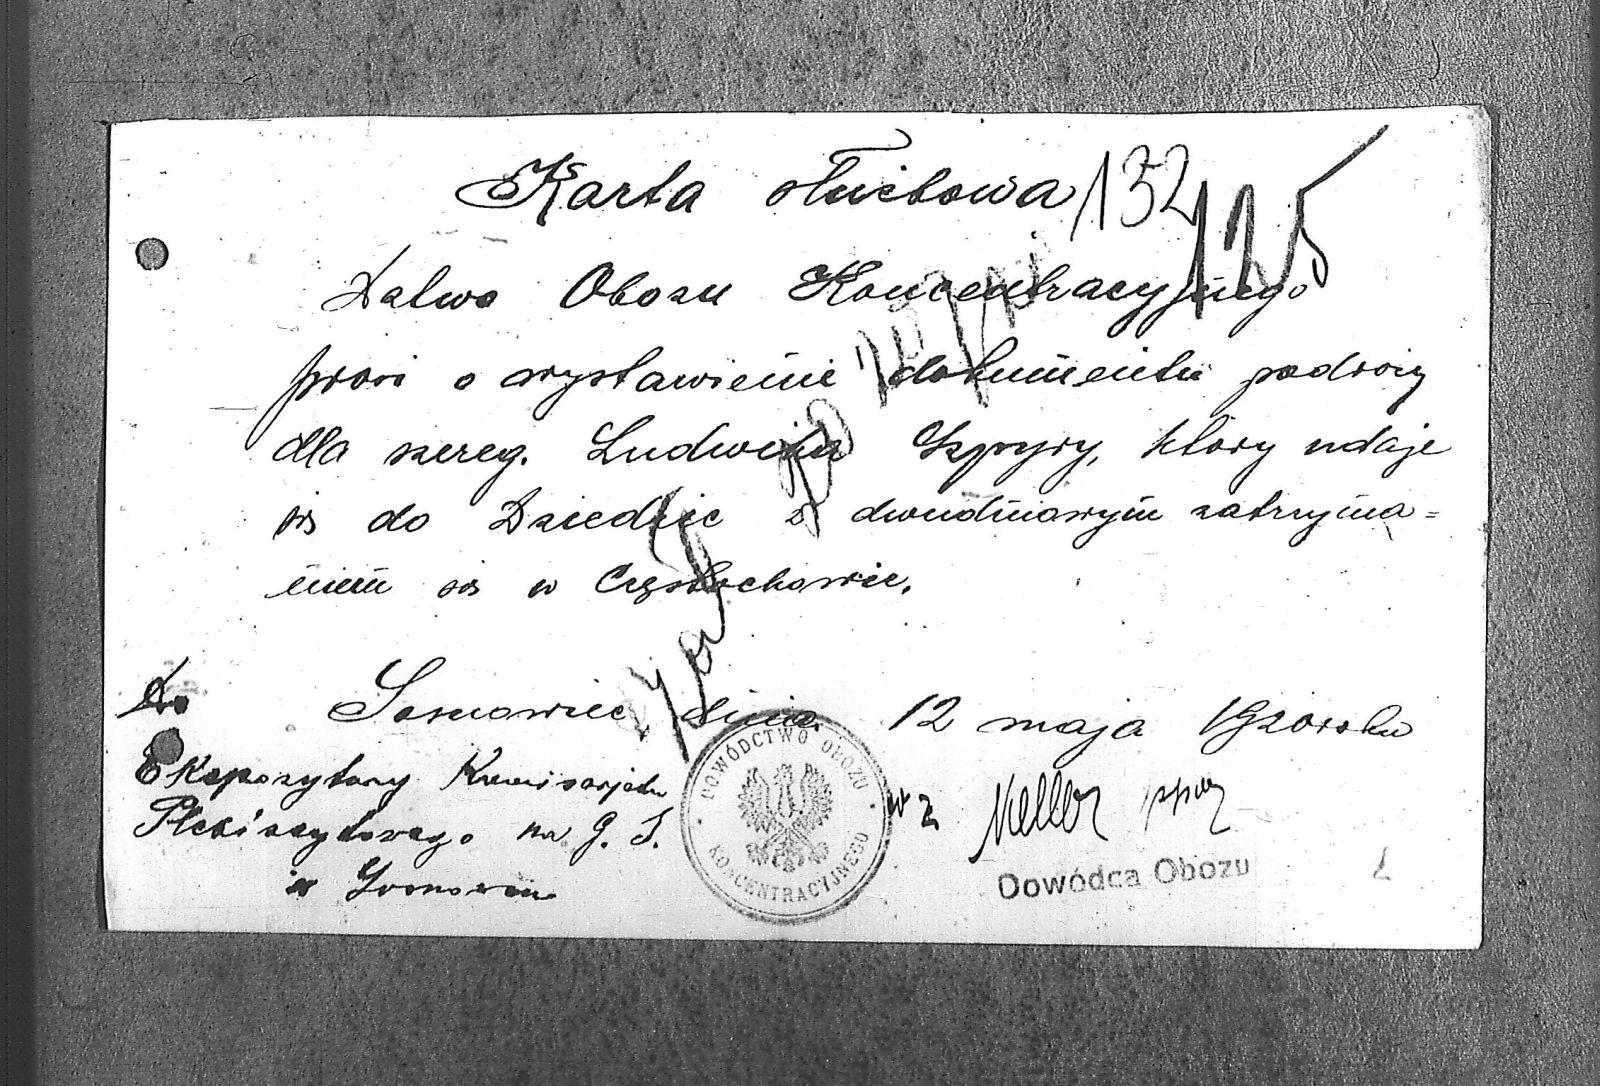 Karta służbowa 132
125
D-two Obozu Koncentracyjnego
prosi o wystawienie dokumentu podroży
dla szereg. Ludwika Szpyry, który udaje
się do Dziedzic z dwudniowym zatrzyma=
niem się w Częstochowie.
Sosnowiec dnia 12 maja 1920 roku
Do
Ekspozytury Komisarjatu
Plebiscytowego na G. S.
w Sosnowcu
DOWÓDCTWO OBOZU
KONCENTRACYJNEGO
w z Keller
Dowódca Obozu